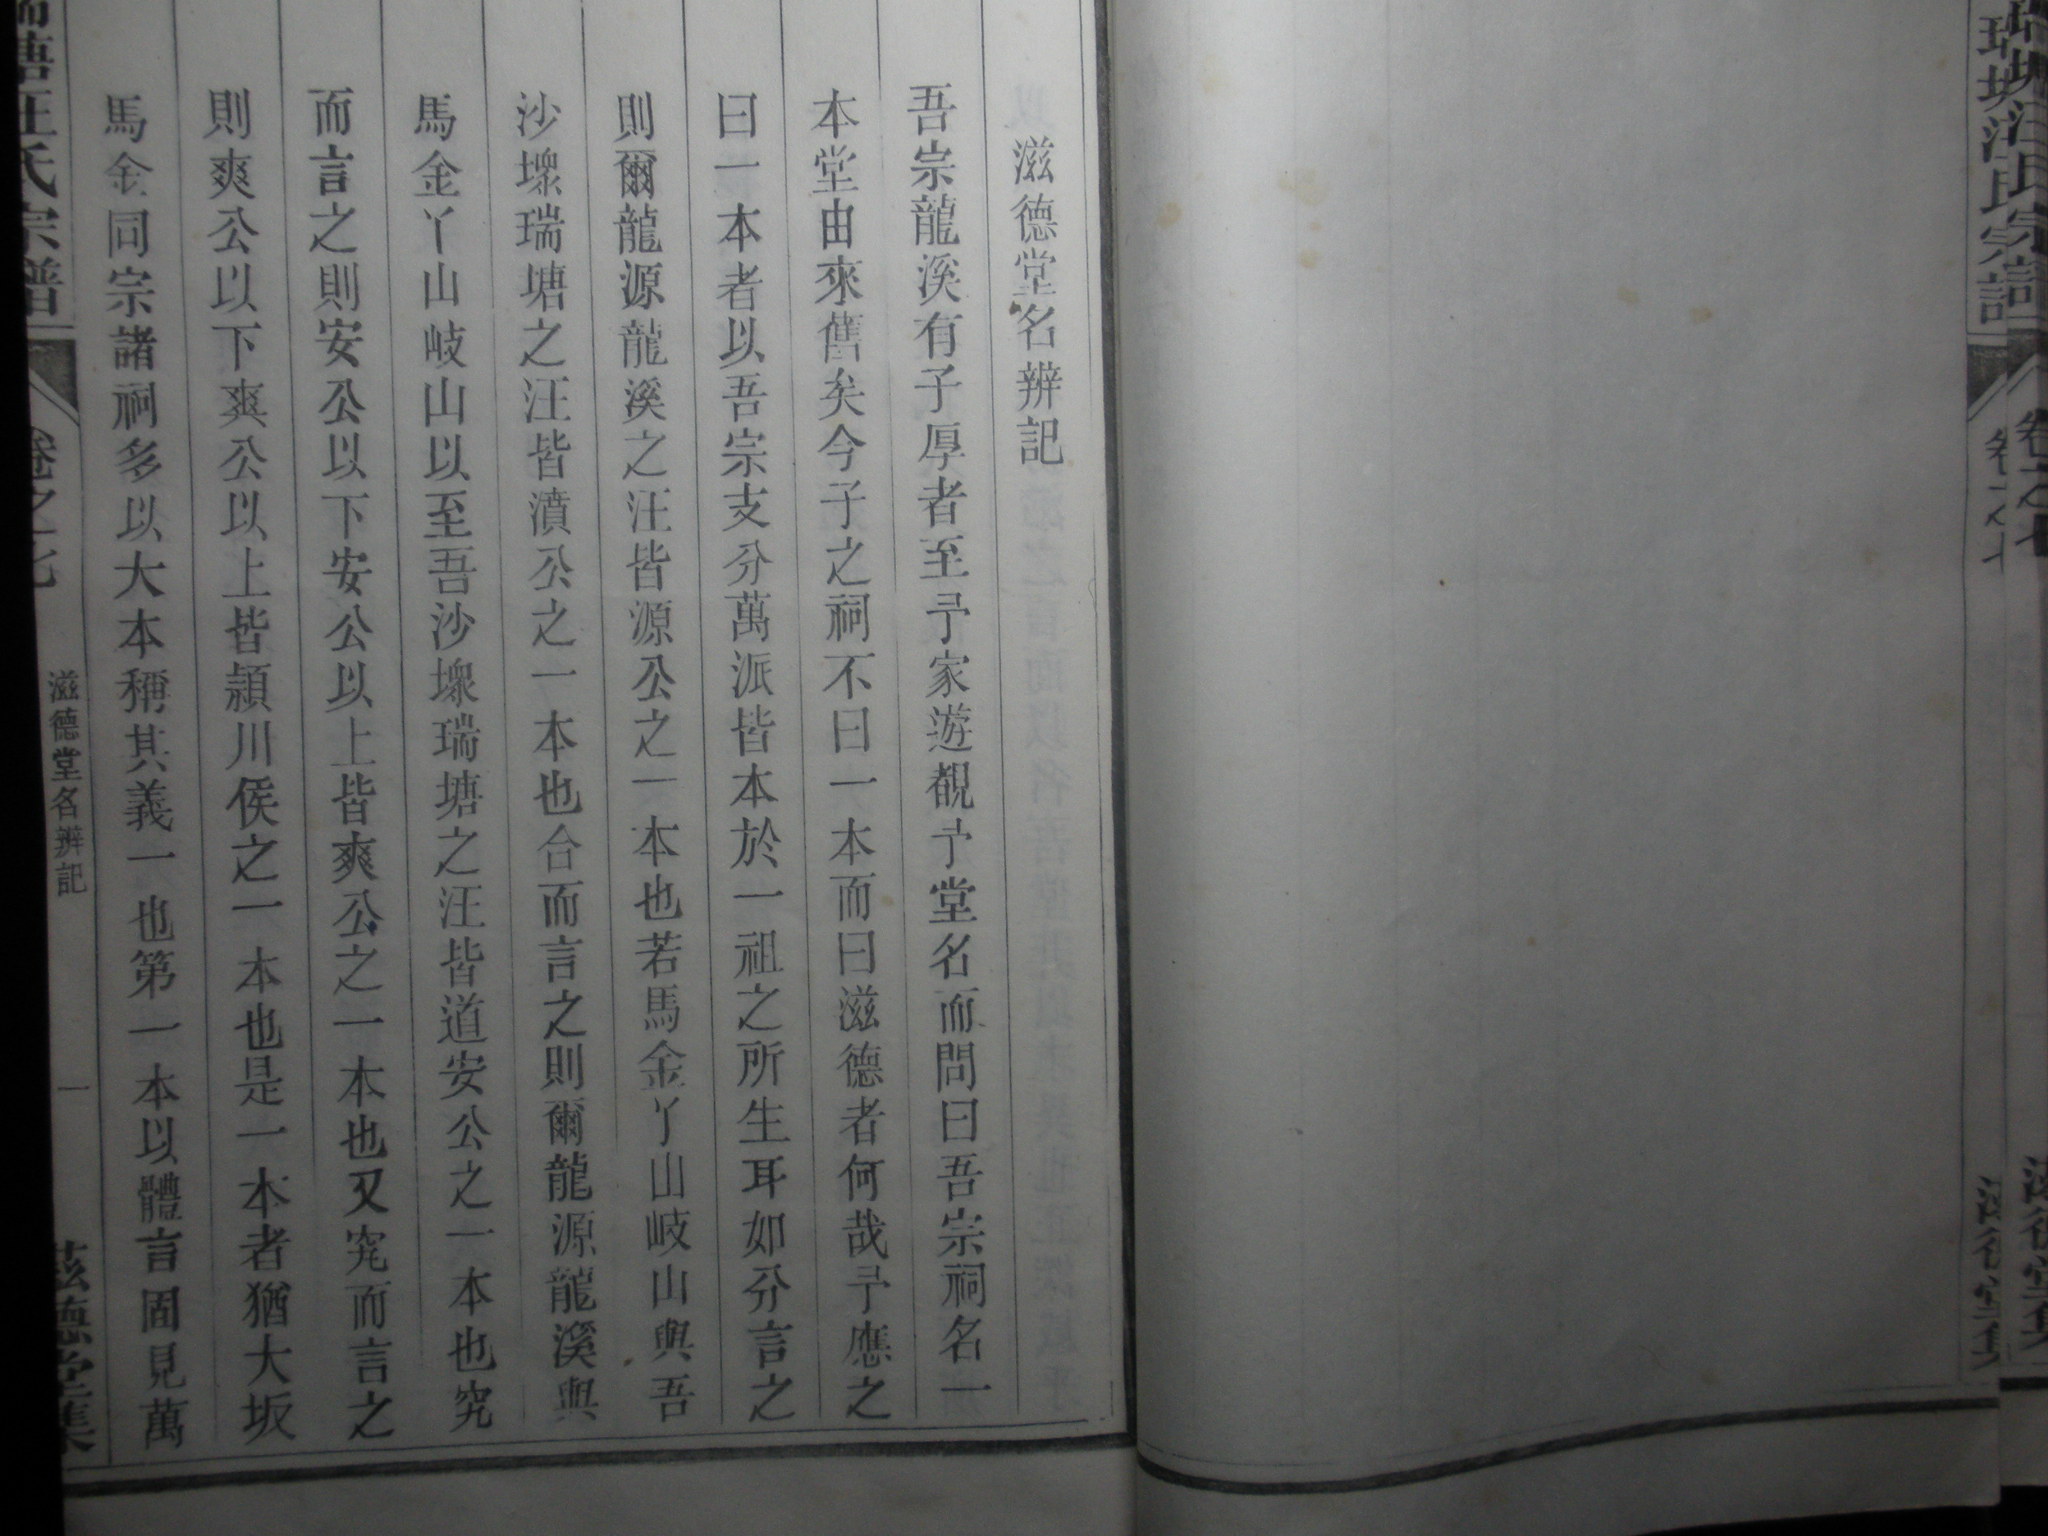 滋德堂名辨記
吾宗龍溪有子厚者至予家遊覩予堂名而問曰吾宗祠名一
本堂由來舊矣今子之祠不曰一本而曰滋德者何哉予應之
曰一本者以吾宗支分萬派皆本於一祖之所生耳如分言之
則爾龍源龍溪之汪皆源公之一本也若馬金丫山岐山與吾
沙㙮瑞塘之汪皆濆公之一本也合而言之則爾龍源龍溪與
馬金丫山岐山以至吾沙㙮瑞塘之汪皆道安公之一本也究
而言之則安公以下安公以上皆爽公之一本也又究而言之
則爽公以下爽公以上皆潁川侯之一本也是一本者猶大坂
馬金同宗諸祠多以大本稱其義一也第一本以體言固見萬
瑞塘汪氏宗譜
卷之七
滋德堂名辨記
一
滋德堂集